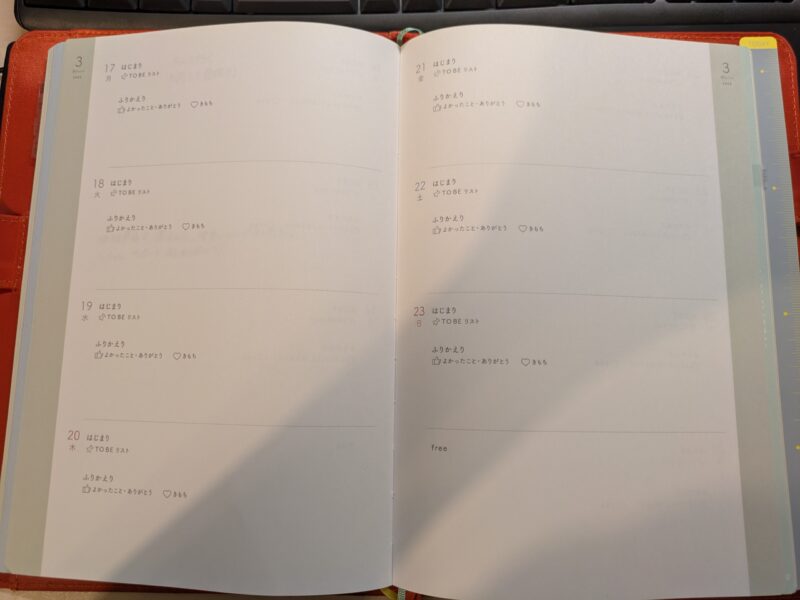 3
17
月
はじまり
TO BE リスト
ふりかえり
よかったこと・ありがとう きもち
18
火
はじまり
TO BE リスト
ふりかえり
よかったこと・ありがとう きもち
19
水
はじまり
TO BE リスト
ふりかえり
よかったこと・ありがとう きもち
20
木
はじまり
TO BE リスト
ふりかえり
よかったこと・ありがとう きもち
21
金
はじまり
TO BE リスト
ふりかえり
よかったこと・ありがとう きもち
22
土
はじまり
TO BE リスト
ふりかえり
よかったこと・ありがとう きもち
23
日
はじまり
TO BE リスト
ふりかえり
よかったこと・ありがとう きもち
free
3